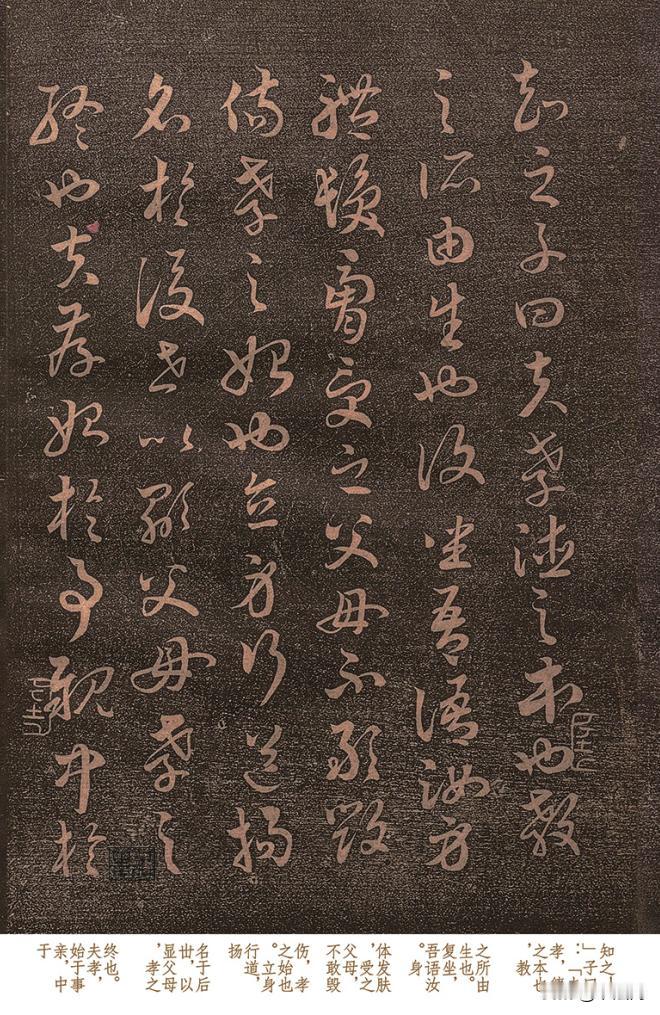 知之子曰夫孝德之本也教
之所由生也復坐吾語汝身
體髮膚受之父母不敢毀
傷孝之始也立身行道揚
名於後世以顯父母孝之
終也夫孝始於事親中於
知之。
」子曰
：「夫
孝，德
之本也
，教
之所由
生也。
复坐，
吾语汝
。身
体发肤
，受之
父母，
不敢毁
伤，孝
之始也
。立身
行道，
扬
名于后
世，以
显父母
，孝之
终也。
夫孝，
始于事
亲，中
于